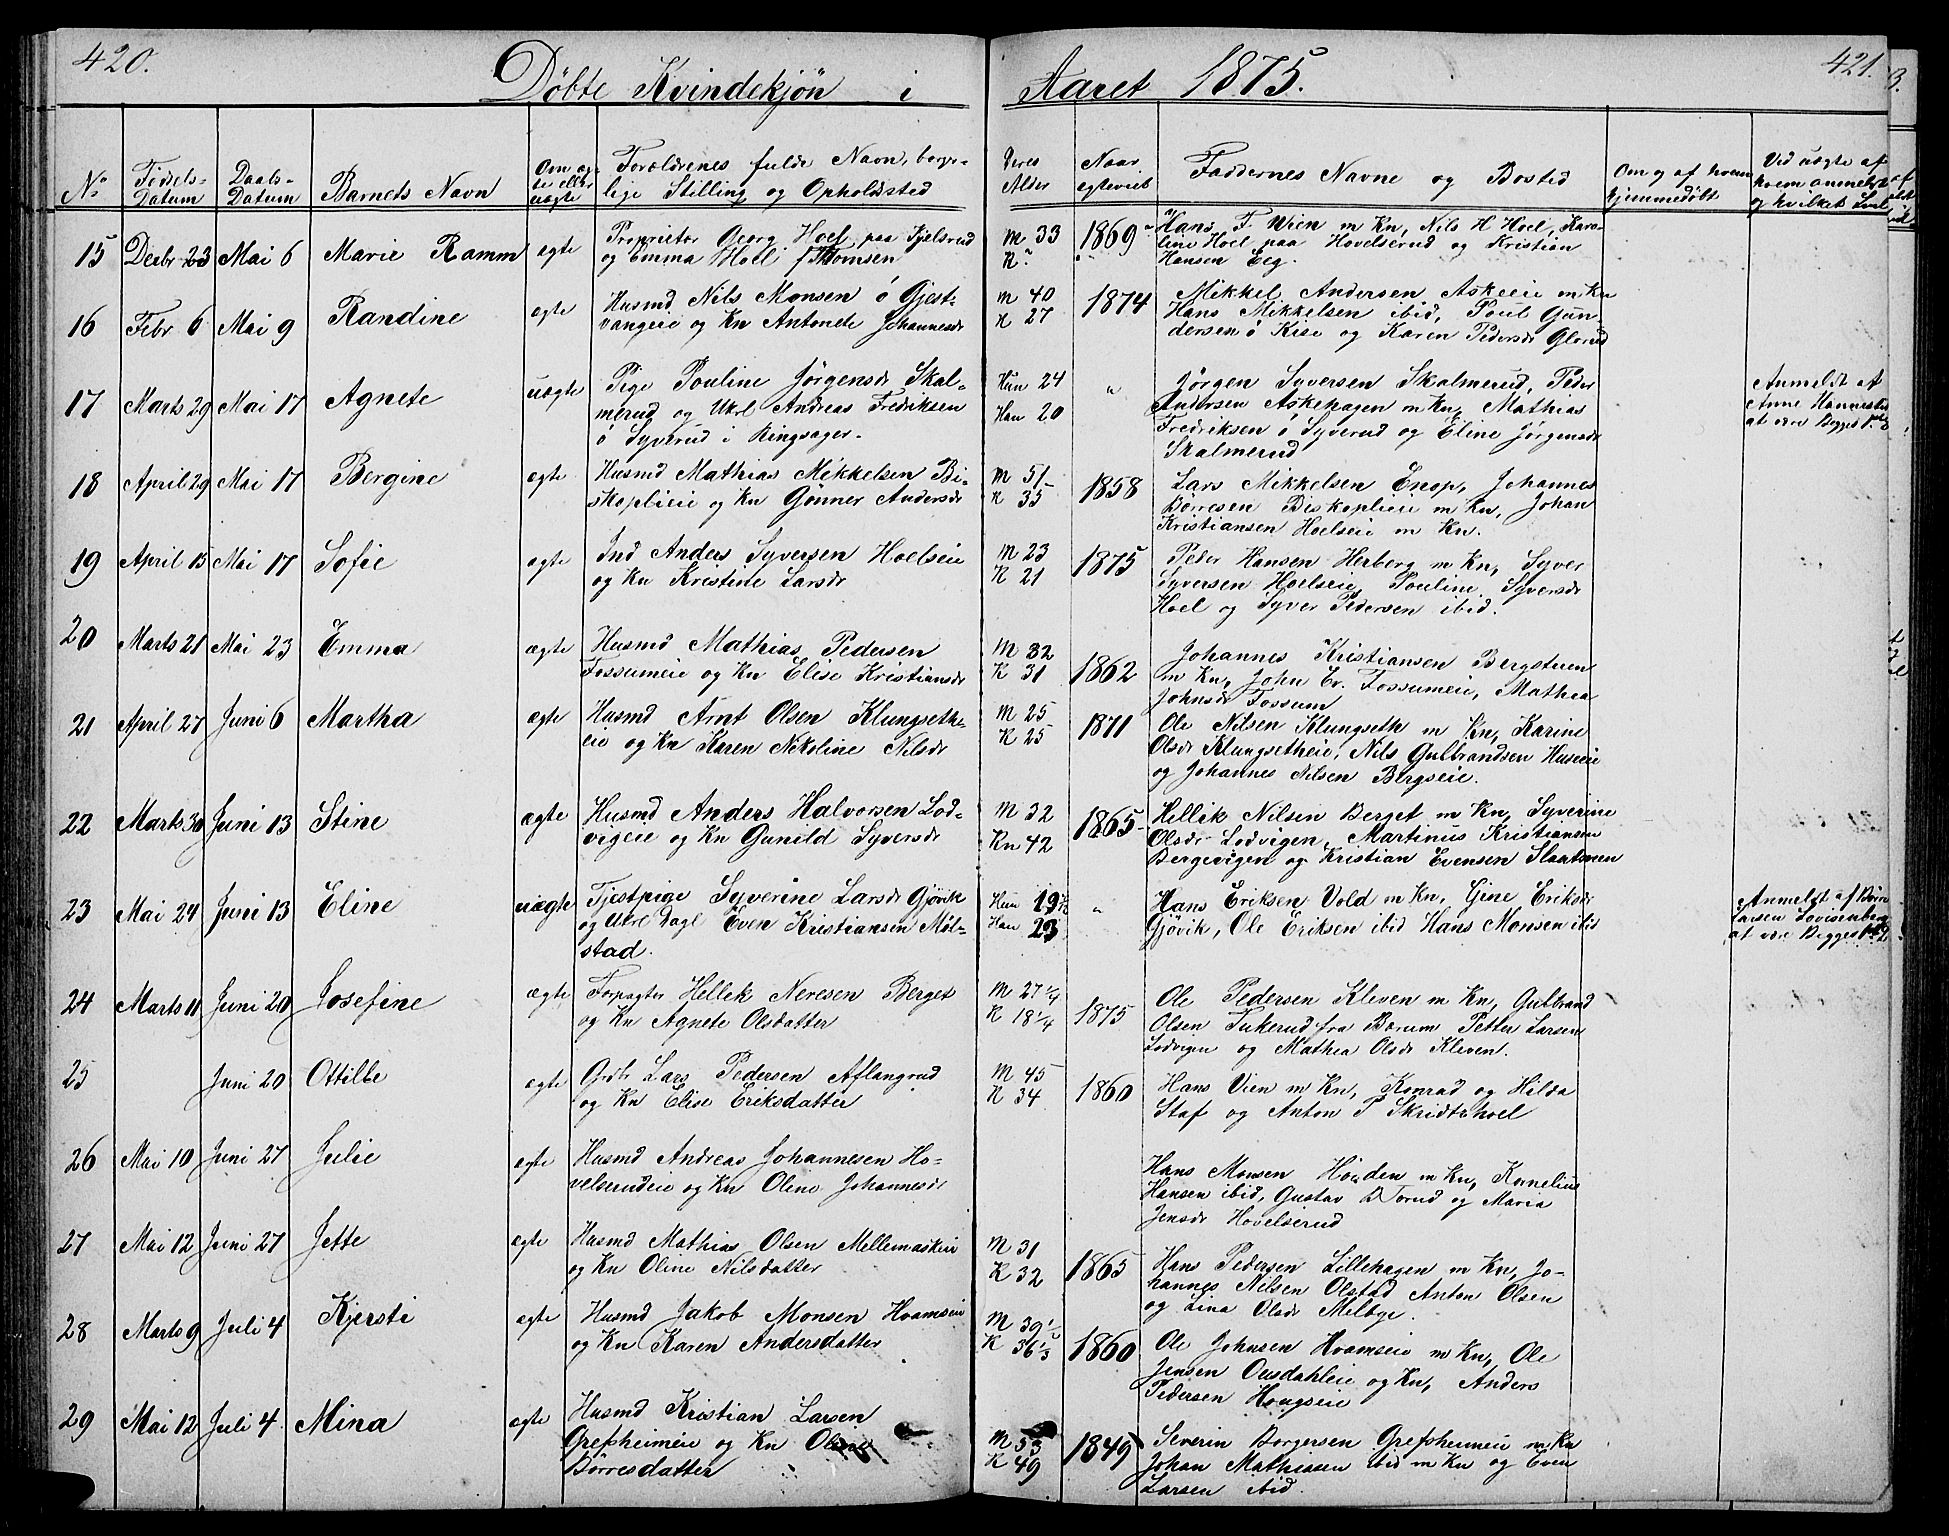 420.
421.
Döbte Kvindekjön i Aaret 1875.
No
Födsels-
Datum
Daabs-
Datum
Barnets Navn
Om æg-
te eller
uægte
Forældrenes fulde Navn, borger-
lige Stilling og Opholdssted
Deres
Alder
Naar
egteviet
Faddernes Navne og Bosted
Om og af hvem
hjemmedöbt
Ved uægte af
hvem anmeldt
og hvilket
15 Decbr 23 Mai 6 Marie Ramm egte
Proprietær Georg Hoel paa Kjelsrud
og Emma Hoel f Thomsen
M 33
K "
1869
Hans F. Wien m Kn, Nils H Hoel, Karo-
line Hoel paa Hovelserud og Kristian
Hansen Eeg.
16 Febr 6 Mai 9 Randine egte
Husmd Nils Monsen ö Gjest-
vangeie og Kn Antonete Johannesdr
M 40
K 27
1874
Mikkel Andersen Askeeie m Kn
Hans Mikkelsen ibid, Poul Gun-
dersen ö Kise og Karen Pedersdr Glorud
17 Marts 29 Mai 17 Agnete uægte
Pige Pouline Jörgensdr Skal-
merud og Ukrl Andreas Fredriksen
ö Syverud i Ringsager.
Hun 24
Han 20
"
Jörgen Syversen Skalmerud, Peder
Andersen Askehagen m Kn, Mathias
Fredriksen ö Syverud og Eline Jörgensdr
Skalmerud
Anmeldt af
Anne Hannestad
at være Begges 1ste
18 April 29 Mai 17 Bergine egte
Husmd Mathias Mikkelsen Bi-
skoplieie og Kn Gunner Andersdr
M 51
K 35
1858
Lars Mikkelsen Enop, Johannes
Börresen Biskoplieie m Kn, Johan
Kristiansen Hoelseie m Kn.
19 April 15 Mai 17 Sofie egte
Ind Anders Syversen Hoelseie
og Kn Kristine Larsdr
M 23
K 21
1875
Peder Hansen Herberg m Kn, Syver
Syversen Hoelseie, Pouline Syversdr
Hoel og Syver Pedersen ibid.
20 Marts 21 Mai 23 Emma ægte
Husmd Mathias Pedersen
Fossumeie og Kn Elise Kristiansdr
M 32
K 31
1862
Johannes Kristiansen Bergsteren
m Kn, John Ev. Fossumeie, Mathea
Johnsdr Fossum
21 April 27 Juni 6 Martha ægte
Husmd Arnt Olsen Klungseth-
eie og Kn Karen Nikoline Nilsdr
M 25
K 25
1871
Ole Nilsen Klungseth m Kn, Karine
Olsdr Klungsetheie, Nils Gulbrandsen Huseie
og Johannes Nilsen Bergseie.
22 Marts 30 Juni 13 Stine ægte
Husmd Anders Halvorsen Lod-
vigeie og Kn Gunild Syversdr
M 32
Kn 42
1865
Hellik Nilsen Berget m Kn, Syverine
Olsdr Lodvigen, Martinus Kristiansen
Bergevigen og Kristian Evensen Slaatmoen
23 Mai 24 Juni 13 Eline uægte
Tjestpige Syverine Larsdr Gjövik
og Ukrl Dagl Even Kristiansen Möl-
stad.
Hun 19½
Han 23
"
Hans Eriksen Vold m Kn, Gine Eriksdr
Gjövik, Ole Eriksen ibid Hans Monsen ibid
Anmeldt af
Larsen Lovisenberg
at være Begges
24 Marts 11 Juni 20 Josefine ægte
Forpagter Hellek Neresen Berget
og Kn Agnete Olsdatter
M 27¼
K 18¼
1875
Ole Pedersen Kleven m Kn, Gulbrand
Olsen Tukerud fra Bærum Petter Larsen
Lodvigen og Mathea Olsdr Kleven.
25 Juni 20 Ottilbe ægte
Grdbr Lars Pedersen Aflangrud
og Kn Elise Eriksdatter
M 45
K 34
1860
Hans Vien m Kn, Konrad og Hilda
Staf og Anton P Skridtshoel
26 Mai 10 Juni 27 Julie ægte
Husmd Andreas Johannesen Ho-
velserudeie og Kn Oline Johannesdr
Hans Monsen Höiden m Kn, Kornelius
Hansen ibid, Gustav D Torud og Maria
Jensdr Hovelserud
27 Mai 12 Juni 27 Jette ægte
Husmd Mathias Olsen Mellemaskeie
og Kn Oline Nilsdatter
M 31
K 32
1865
Hans Pedersen Lillehagen m Kn, Jo-
hannes Nilsen Olstad Anton Olsen
og Lina Olsdr Melbye.
28 Marts 9 Juli 4 Kjersti egte
Husmd Jakob Monsen Hvamseie
og Kn Karen Andersdatter
M 39½
K 36⅓
1860
Ole Johnsen Hvamseie m Kn, Ole
Jensen Ousdahleie og Kn, Anders
Pedersen Hougseie
29 Mai 12 Juli 4 Mina ægte
Husmd Kristian Larsen
Grefsheimeie og Kn
Börresdatter
M 53
K 49
1849
Severin Borgersen Grefsheimeie m Kn
Johan Mathiassen ibid m Kn og Even
Larsen ibid.